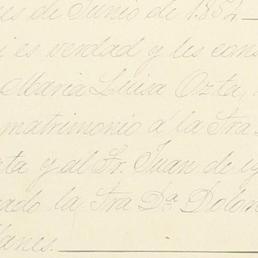 es de Junio de 1852
i es verdad y les cons
Maria Luisa Orta,
matrimonio á la Sra
ta y al Sr. Juan de
ado la Sra Da Dolor
lanes.